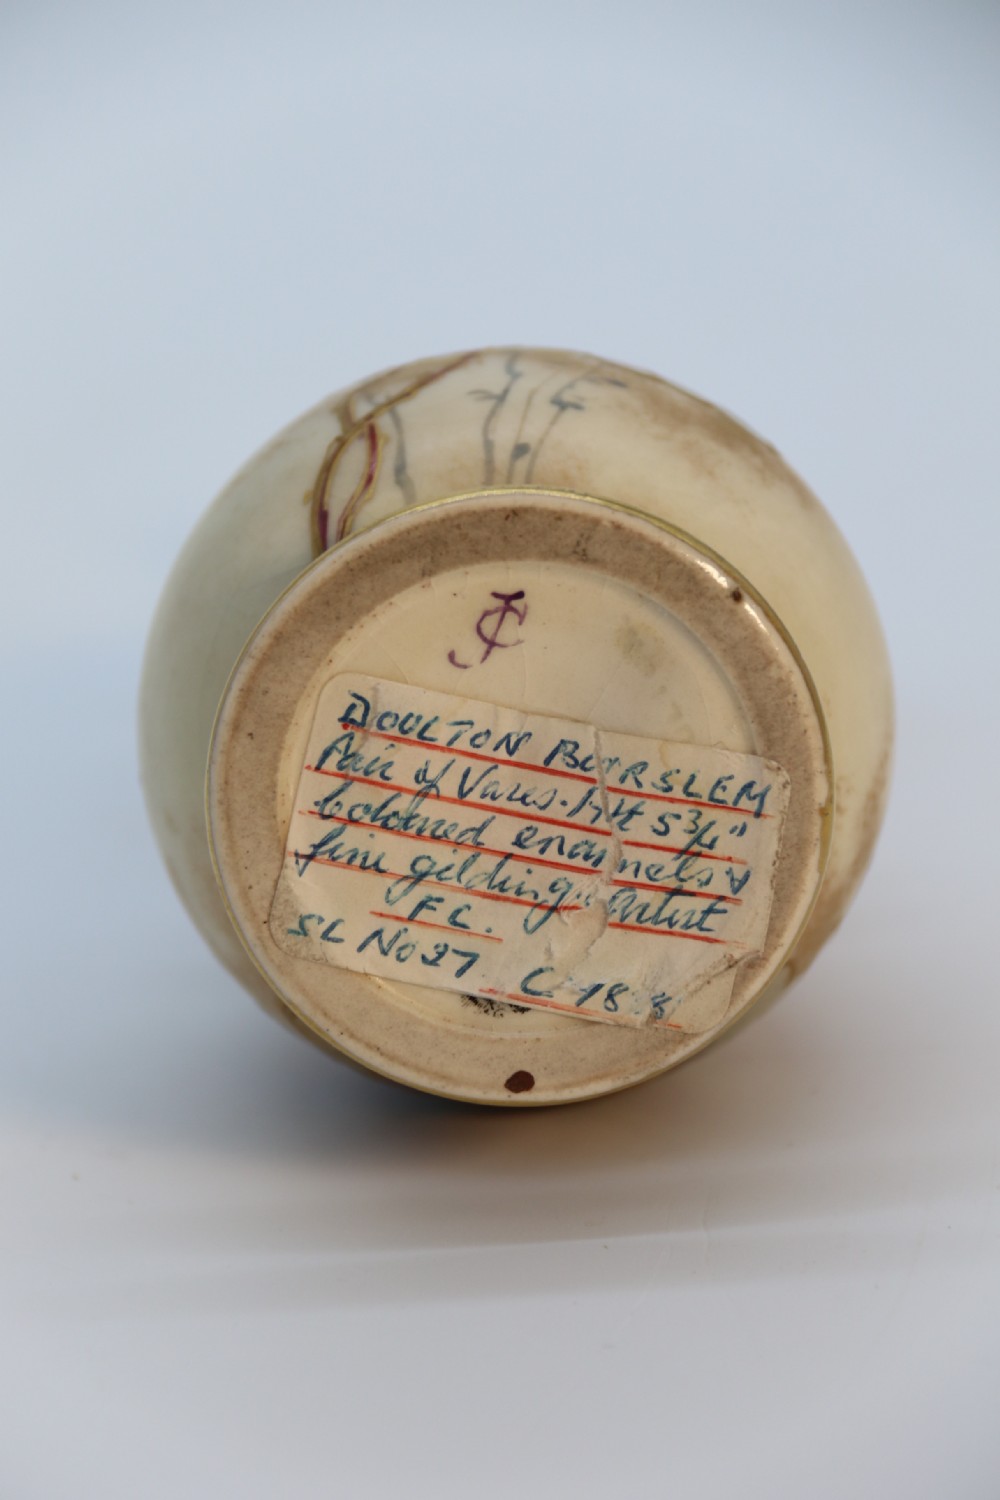 DOULTON BURSLEM
Pair of Vases. Hht 5¾"
Coloured enamels &
fine gilding. Artist
FC.
SL No 27 C 18